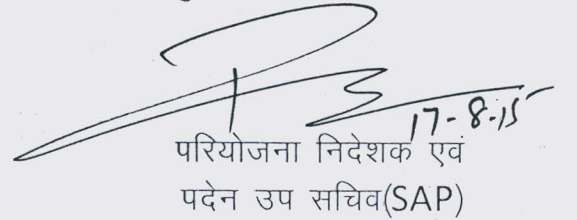 17-8-15
परियोजना निदेशक एवं
पदेन उप सचिव(SAP)